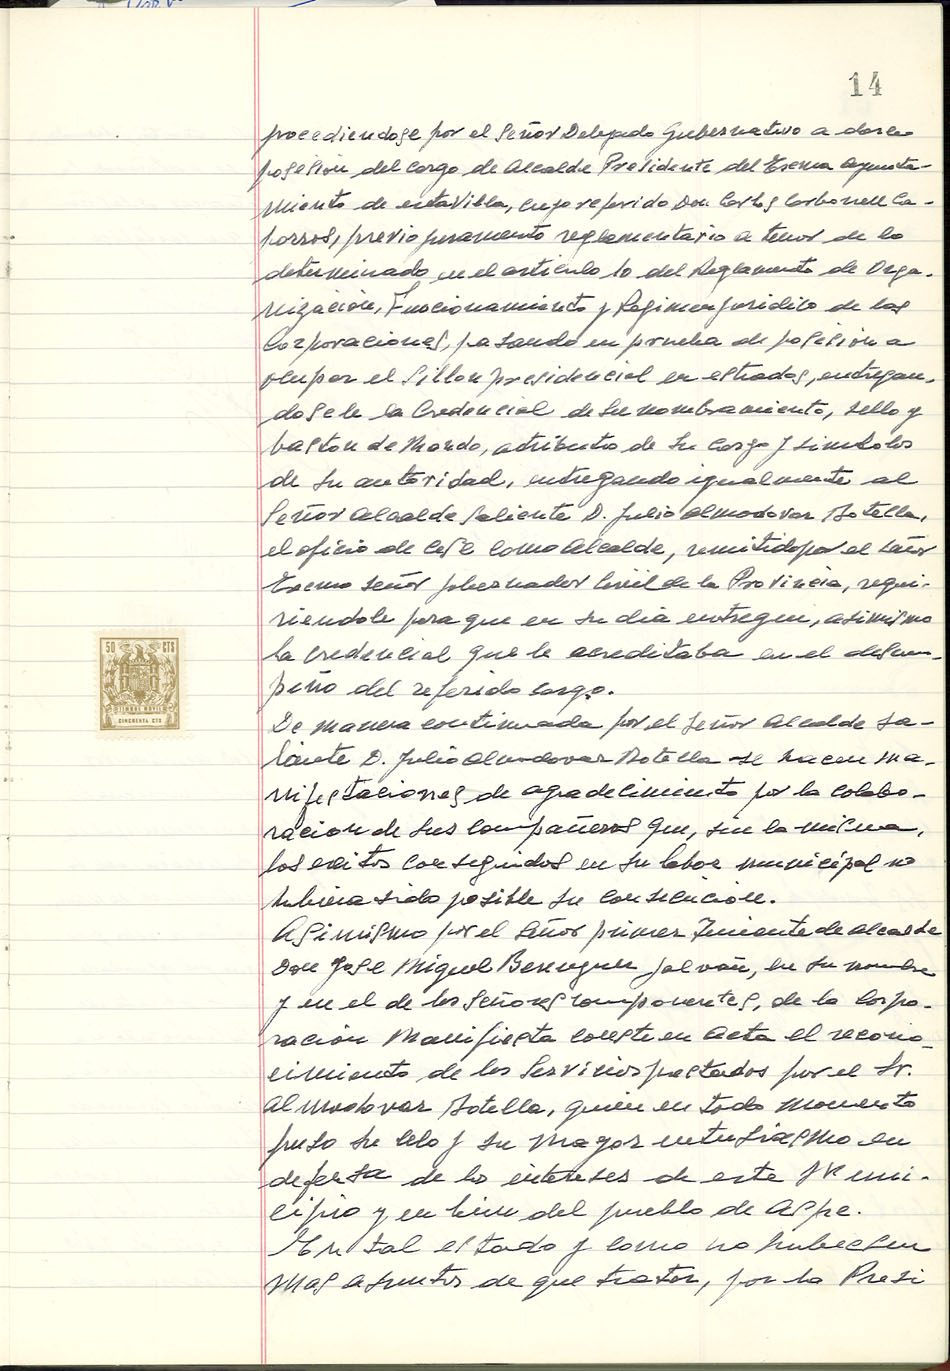 14
procediendose por el Señor Delegado Gubernativo a darle
posesion del cargo de Alcalde Presidente del Excmo Ayunta-
miento de esta Villa, al referido Don Carlos Carbonell Ca-
parros, previo juramento reglamentario a tenor de lo
determinado en el articulo 10 del Reglamento de Orga-
nización, Funcionamiento y Regimen Juridico de las
Corporaciones, pasando en prueba de posesion a
ocupar el Sillon presidencial en estrados, entregan-
dosele la Credencial de su nombramiento, sello y
baston de Mando, atributo de su cargo y simbolos
de su autoridad, entregando igualmente al
Señor Alcalde Saliente D. Julio Almodovar Botella,
el oficio de cese como Alcalde, remitido por el Señor
Excmo Señor Gobernador Civil de la Provincia, requi-
riendole para que en su dia entregue, asimismo
la Credencial que le acreditaba en el desem-
peño del referido cargo.
De manera continuada por el Señor Alcalde Sa-
liente D. Julio Almodovar Botella se hacen ma-
nifestaciones de agradecimiento por la colabo-
racion de sus compañeros que, sin la misma,
los exitos conseguidos en su labor municipal no
hubiera sido posible su consecucion.
Asimismo por el Señor primer Teniente de alcalde
Don Jose Miguel Berenguer Galvañ, en su nombre
y en el de los Señores componentes, de la Corpo-
ración Manifiesta conste en Acta el recono-
cimiento de los Servicios prestados por el Sr.
Almodovar Botella, quien en todo momento
puso su celo y su mayor entusiasmo en
defensa de los intereses de este Muni-
cipio y en bien del pueblo de Aspe.
En tal estado y como no hubiesen
mas asuntos de que tratar, por la Presi
50 CTS
TIMBRE MOVIL
CINCUENTA CTS